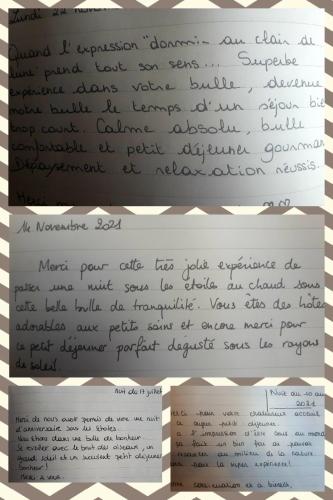 Lundi 22 nove
Quand l'expression "dormir au clair de
lune" prend tout son sens... Superbe
expérience dans votre bulle, devenue
notre bulle le temps d'un séjour bie
trop court. Calme absolu, bulle
confortable et petit déjeuner gourman
Dépaysement et relaxation réussis.
Merci
14 Novembre 2021
Merci pour cette très jolie expérience de
passer une nuit sous les étoiles au chaud sous
cette belle bulle de tranquilité. Vous êtes des hôtes
adorables aux petits soins et encore merci pour
ce petit déjeuner parfait degusté sous les rayons
de soleil.
Nuit du 17 juillet
Merci de nous avoir permis de vivre une nuit
d'anniversaire sous les étoiles.
Nous étions dans une bulle de bonheur.
Se réveiller avec le bruit des oiseaux, un
soleil et un excellent petit déjeuner
bonheur!
Merci à vous.
Nuit du 10 au
2021
pour votre chaleureux accueil
ce super petit déjeuner.
a l'impression d'être seuls au monde
ça fait un bien fou de pouvoir
se ressourcer au milieu de la nature
pour la super expérience!
continuation et à bientôt,